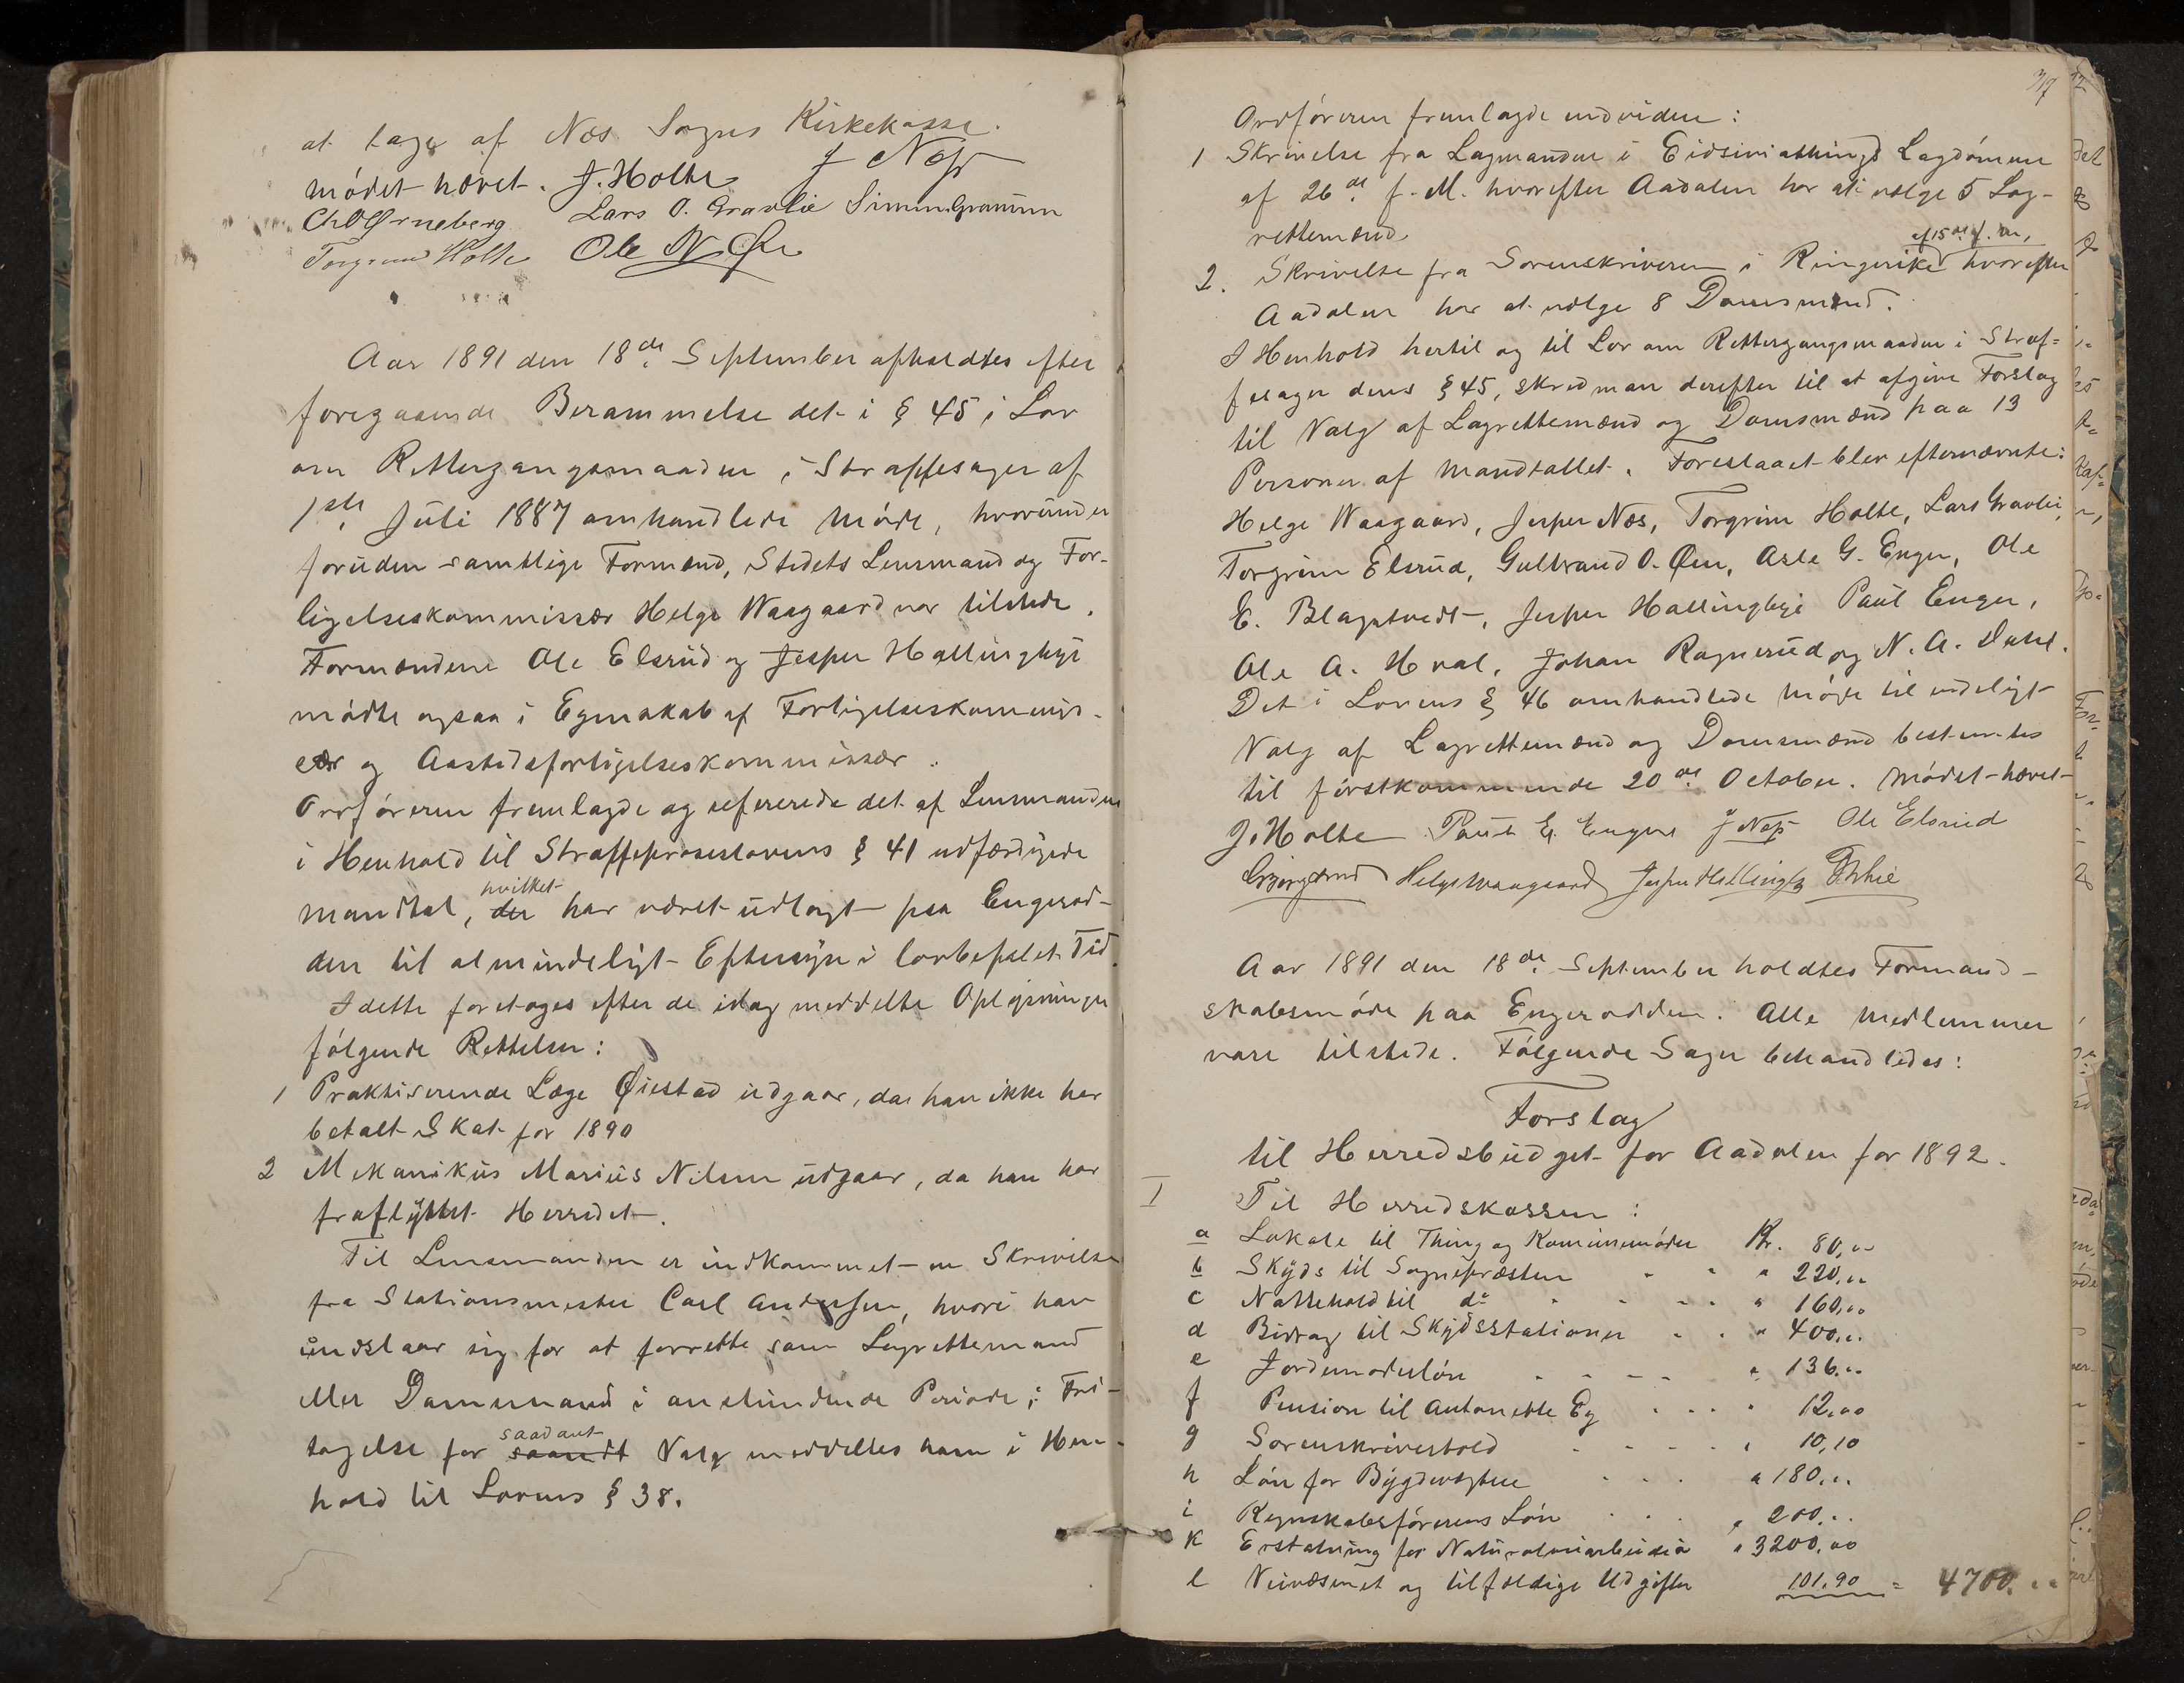 at tage af Næs Sogns Kirkekasse.
Mödet hævet. J. Holte J Næs
Ch Ørneberg Lars O. Gravlie Simen Gramm
Torgrim Holte Ole N. Øen
Aar 1891 den 18de September afholdtes efter
foregaaende Berammelse det i § 45 i Lov
om Rettergangsmaaden i Straffesager af
1ste Juli 1887 omhandlede Möde, hvorunder
foruden samtlige Formænd, Stedets Lensmand og For-
ligelseskommissær Helge Waagaard var tilstede.
Formændene Ole Elsrud og Jesper Hallingbye
mödte ogsaa i Egenskab af Forligelseskommis-
sær og Aastedsforligelseskommissær.
Ordföreren fremlagde og refererede det af Lensmanden
i Henhold til Straffeproseslovens § 41 udfærdigede
hvilket
Mandtal, der har været udlagt paa Engerod-
den til almindeligt Eftersyn i lovbefalet Tid.
I dette foretoges efter de idag meddelte Oplysninger
fölgende Rettelser:
1 Praktiserende Læge Øiestad udgaar, da han ikke har
betalt Skat for 1890
2 Mekanikus Marius Nilsen udgaar, da han har
fraflyttet Herredet.
Til Lensmanden er indkommet en Skrivelse
fra Stationsmester Carl Andersen, hvori han
undslaar sig for at forrette som Lagrettemand
eller Domsmand i anstundende Periode; Fri-
saadant
tagelse for saandt Valg meddeltes ham i Hen-
hold til Lovens § 38.
Ordföreren fremlagde endvidere:
1 Skrivelse fra Lagmanden i Eidsivathings Lagdömme
af 26de f. M. hvorefter Aadalen har at vælge 5 Lag-
rettemænd
af 15de f. M,
2. Skrivelse fra Sorenskriveren i Ringerike hvorefter
Aadalen har at vælge 8 Domsmænd.
I Henhold hertil og til Lov om Rettergangsmaaden i Straf-
fesager dens § 45, skred man derefter til at afgive Forslag
til Valg af Lagrettemænd og Domsmænd paa 13
Personer af Mandtallet. Foreslaaet blev efternævnte:
Helge Waagaard, Jesper Næs, Torgrim Holte, Lars Gravlie,
Torgrim Elsrud, Gulbrand O. Øen, Asle G. Enger, Ole
E. Blagstvedt, Jesper Hallingbye Paul Enger,
Ole A. Hval, Johan Ragnerud og N. A. Dahl.
Det i Lovens § 46 omhandlede Möde til endeligt
Valg af Lagrettemænd og Domsmænd bestemtes
til förstkommende 20de October. Mödet hævet
J. Holte Paul G. Enger J Næs Ole Elsrud
Helge Waagaard Jesper Hallingby
Aar 1891 den 18de September holdtes Formand-
skabsmöde paa Engerodden. Alle Medlemmer
vare tilstede. Fölgende Sager behandledes:
Forslag
til Herredsbudget for Aadalen for 1892.
I Til Herredskassen:
a Lokale til Thing og Kommunemöder Kr. 80,00
b Skyds til Sognepræsten " 220,00
c Nattehold til do " 160,00
d Bidrag til Skydsstationer " 400,00
e Jordemoderlön " 136,00
f Pension til Antonette Eg " 12,00
g Sorenskriverhold " 10,10
h Lön for Bygdevægtere " 180,00
i Regnskabsförerens Lön " 200,00
k Erstatning for Naturalveiarbeide " 3200,00
l Veivæsenet og tilfældige Udgifter 101,90 = 4700,00